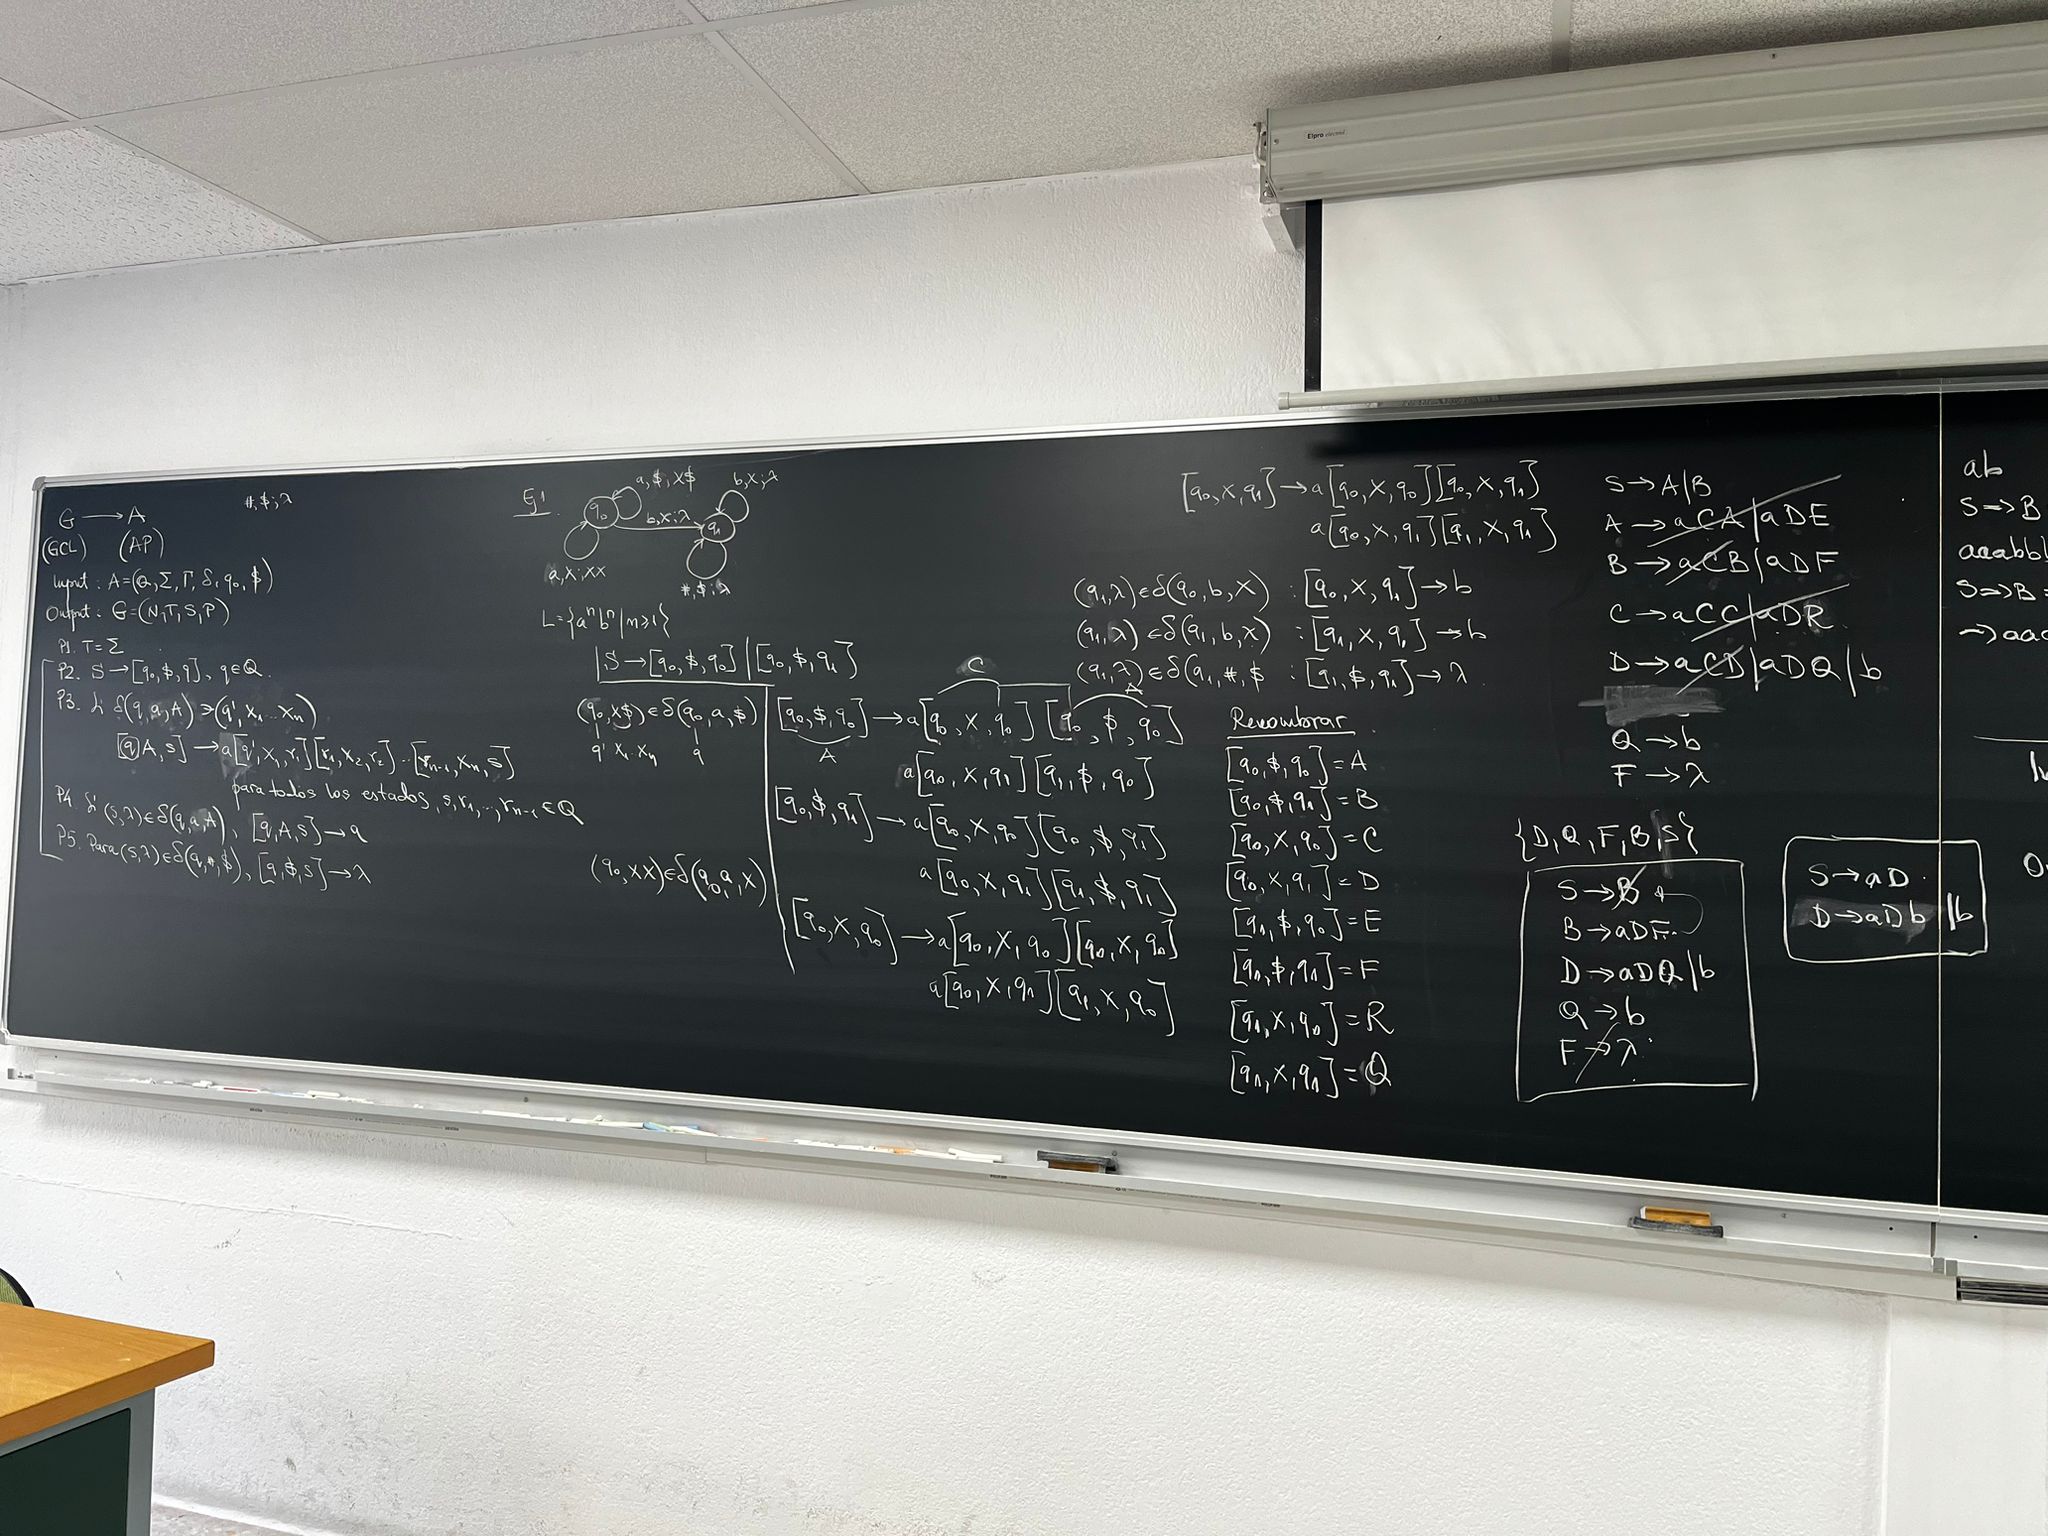 Elpro electric
G → A
(GCL) (AP)
#,$;λ
Input: A=(Q,Σ,Γ,δ,q₀,$)
Output: G=(N,T,S,P)
P1. T=Σ
P2. S→[q₀,$,q], q∈Q.
P3. Si δ(q,a,A)∋(q',x₁...xₙ)
[q,A,s]→a[q',x₁,r₁][r₁,x₂,r₂]...[rₙ₋₁,xₙ,s]
para todos los estados, s,r₁,...,rₙ₋₁∈Q
P4. Si (s,λ)∈δ(q,a,A), [q,A,s]→a
P5. Para (s,λ)∈δ(q,#,$), [q,$,s]→λ
Ej1.
a,$;X$
b,x;λ
q₀
b,x;λ
q₁
a,x;xx
#,$;λ
L={aⁿbⁿ|n≥1}
S→[q₀,$,q₀]|[q₀,$,q₁]
(q₀,X$)∈δ(q₀,a,$)
q' x₁..xₙ q
[q₀,$,q₀]→a[q₀,X,q₀][q₀,$,q₀]
A C A
a[q₀,X,q₁][q₁,$,q₀]
[q₀,$,q₁]→a[q₀,X,q₀][q₀,$,q₁]
a[q₀,X,q₁][q₁,$,q₁]
(q₀,XX)∈δ(q₀,a,X)
[q₀,X,q₀]→a[q₀,X,q₀][q₀,X,q₀]
a[q₀,X,q₁][q₁,X,q₀]
[q₀,X,q₁]→a[q₀,X,q₀][q₀,X,q₁]
a[q₀,X,q₁][q₁,X,q₁]
(q₁,λ)∈δ(q₀,b,X) : [q₀,X,q₁]→b
(q₁,λ)∈δ(q₁,b,X) : [q₁,X,q₁]→b
(q₁,λ)∈δ(q₁,#,$ : [q₁,$,q₁]→λ
Renombrar
[q₀,$,q₀]=A
[q₀,$,q₁]=B
[q₀,X,q₀]=C
[q₀,X,q₁]=D
[q₁,$,q₀]=E
[q₁,$,q₁]=F
[q₁,X,q₀]=R
[q₁,X,q₁]=Q
S→A|B
A→aCA|aDE
B→aCB|aDF
C→aCC|aDR
D→aCD|aDQ|b
Q→b
F→λ
{D,Q,F,B,S}
S→B
B→aDF
D→aDQ|b
Q→b
F→λ
S→aD
D→aDb|b
ab
S⇒B
aaabb
S⇒B
→aa